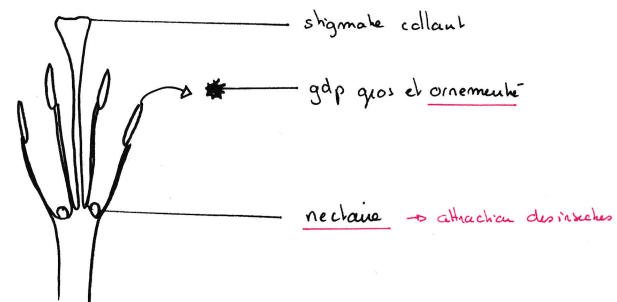 stigmate collant
gdp gros et ornementé
nectaire → attraction des insectes